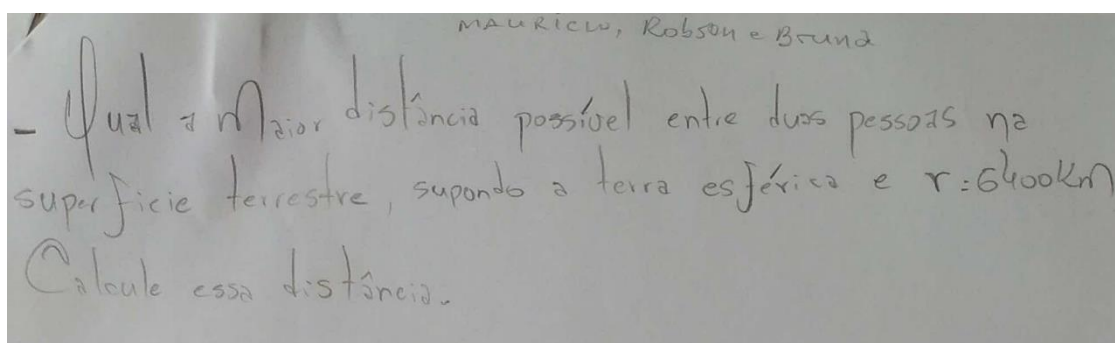 MAURICIO, Robson e Bruna
- Qual a Maior distância possível entre duas pessoas na
superfície terrestre, supondo a terra esférica e r=6400km
Calcule essa distância.